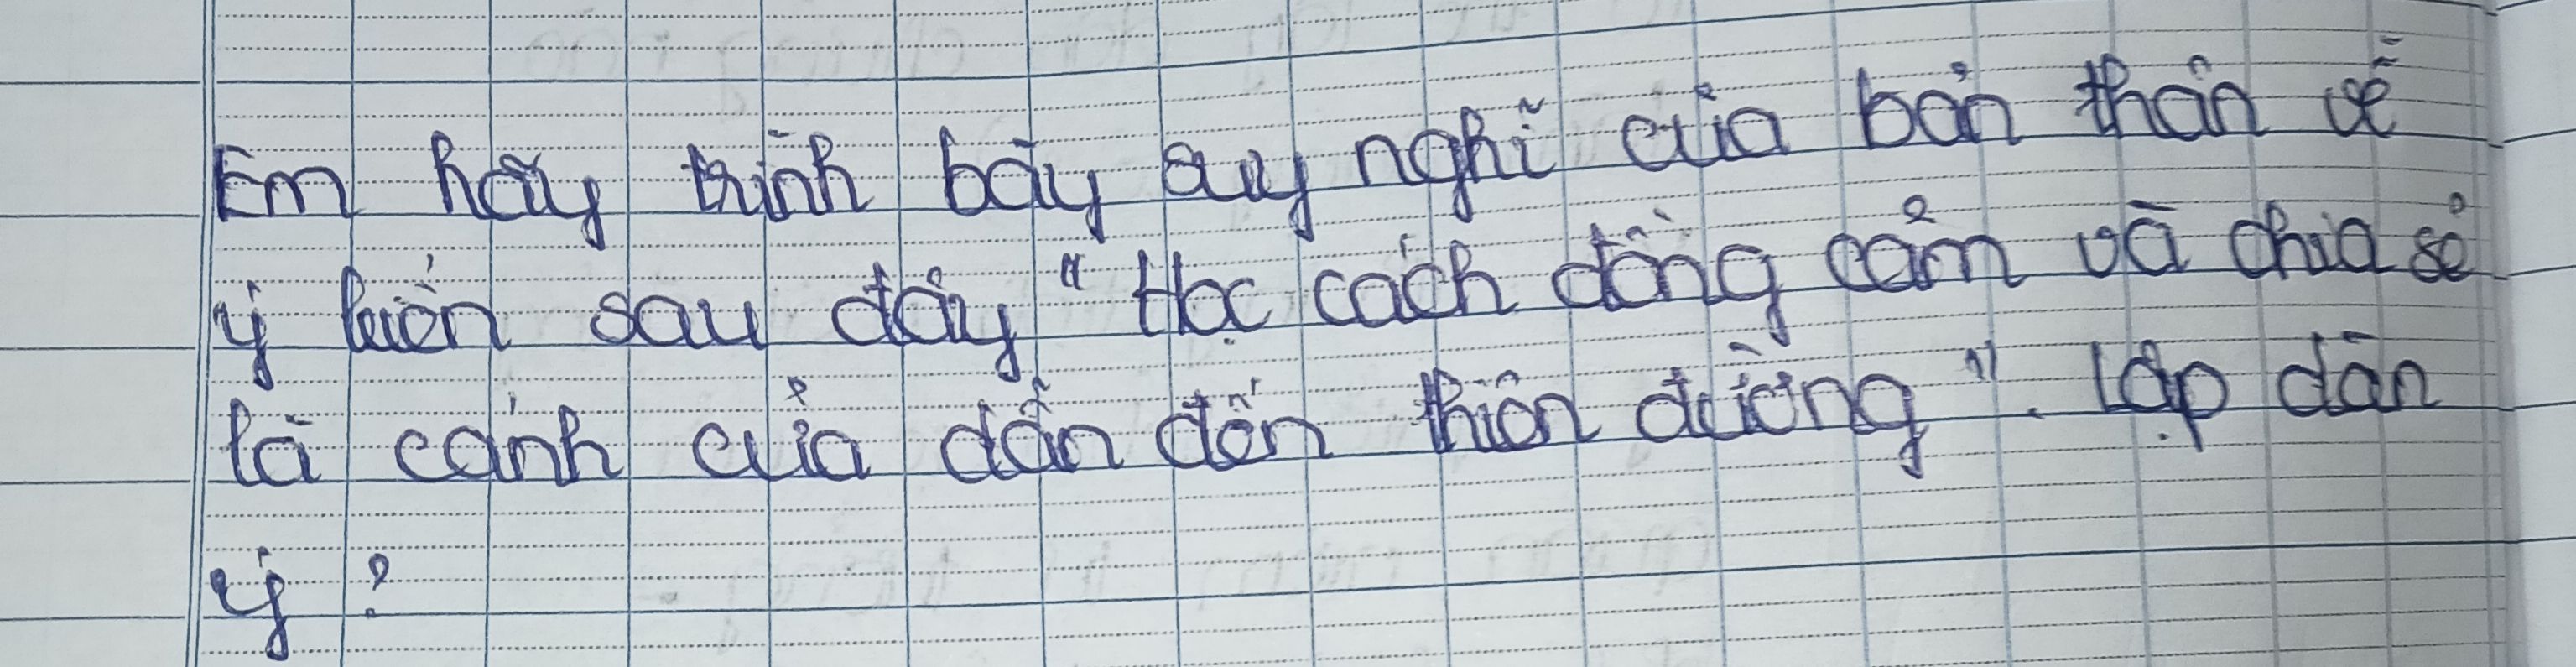 Em hãy trình bày suy nghĩ của bản thân về
ý kiến sau đây " Học cách đồng cảm và chia sẻ
là cánh cửa dẫn đến thiên đường ". lập dàn
ý ?